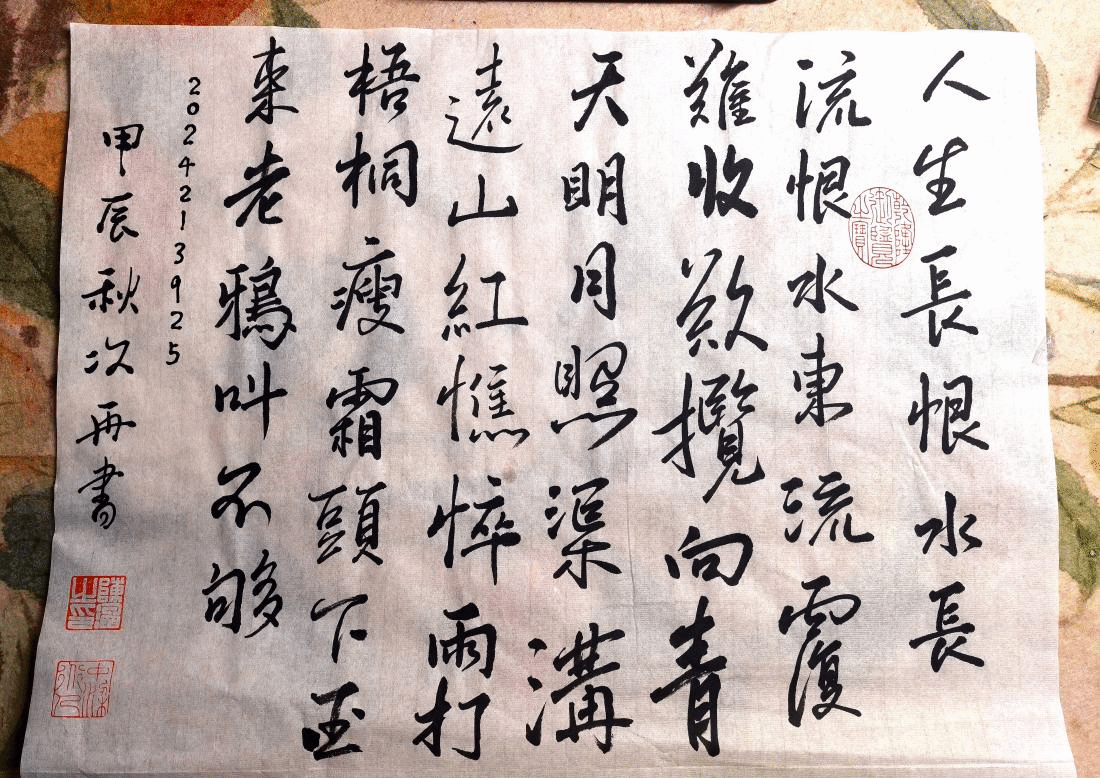 人生長恨水長
流恨水東流覆
難收欲攬向青
天明月照渠溝
遠山紅憔悴雨打
梧桐瘦霜頭下玉
東老鴉叫不夠
2024213925
甲辰秋次再書